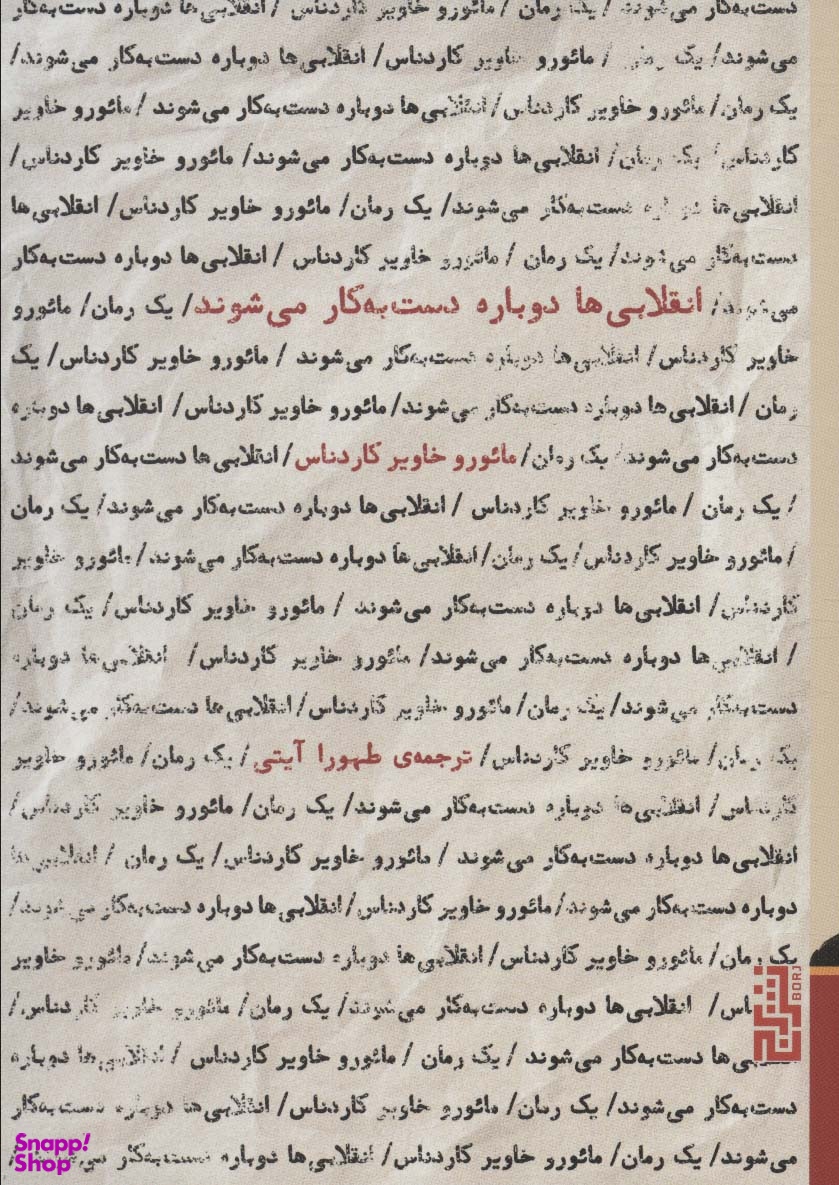 دست‌به‌کار می‌شوند / یک رمان / مائورو خاویر کاردناس / انقلابی‌ها دوباره دست‌به‌کار
می‌شوند/ یک رمان / مائورو خاویر کاردناس/ انقلابی‌ها دوباره دست‌به‌کار می‌شوند/
یک رمان/ مائورو خاویر کاردناس/ انقلابی‌ها دوباره دست‌به‌کار می‌شوند /مائورو خاویر
کاردناس/ یک رمان/ انقلابی‌ها دوباره دست‌به‌کار می‌شوند/ مائورو خاویر کاردناس/
انقلابی‌ها دوباره دست‌به‌کار می‌شوند/ یک رمان/ مائورو خاویر کاردناس/ انقلابی‌ها
دست‌به‌کار می‌شوند/ یک رمان / مائورو خاویر کاردناس / انقلابی‌ها دوباره دست‌به‌کار
می‌شوند/ انقلابی‌ها دوباره دست‌به‌کار می‌شوند/ یک رمان/ مائورو
خاویر کاردناس/ انقلابی‌ها دوباره دست‌به‌کار می‌شوند / مائورو خاویر کاردناس/ یک
رمان / انقلابی‌ها دوباره دست‌به‌کار می‌شوند/ مائورو خاویر کاردناس/ انقلابی‌ها دوباره
دست‌به‌کار می‌شوند/ یک رمان/ مائورو خاویر کاردناس/ انقلابی‌ها دست‌به‌کار می‌شوند
/ یک رمان / مائورو خاویر کاردناس / انقلابی‌ها دوباره دست‌به‌کار می‌شوند/ یک رمان
/ مائورو خاویر کاردناس/ یک رمان/ انقلابی‌ها دوباره دست‌به‌کار می‌شوند/ مائورو خاویر
کاردناس/ انقلابی‌ها دوباره دست‌به‌کار می‌شوند / مائورو خاویر کاردناس/ یک رمان
/ انقلابی‌ها دوباره دست‌به‌کار می‌شوند/ مائورو خاویر کاردناس/ انقلابی‌ها دوباره
دست‌به‌کار می‌شوند/ یک رمان/ مائورو خاویر کاردناس/ انقلابی‌ها دست‌به‌کار می‌شوند/
یک رمان/ مائورو خاویر کاردناس/ ترجمه‌ی طهورا آیتی/ یک رمان/ مائورو خاویر
کاردناس/ انقلابی‌ها دوباره دست‌به‌کار می‌شوند/ یک رمان/ مائورو خاویر کاردناس/
انقلابی‌ها دوباره دست‌به‌کار می‌شوند / مائورو خاویر کاردناس/ یک رمان / انقلابی‌ها
دوباره دست‌به‌کار می‌شوند/ مائورو خاویر کاردناس/ انقلابی‌ها دوباره دست‌به‌کار می‌شوند/
یک رمان/ مائورو خاویر کاردناس/ انقلابی‌ها دوباره دست‌به‌کار می‌شوند/ مائورو خاویر
انقلابی‌ها دوباره دست‌به‌کار می‌شوند/ یک رمان/ مائورو خاویر کاردناس/
دست‌به‌کار می‌شوند / یک رمان / مائورو خاویر کاردناس / انقلابی‌ها دوباره
دست‌به‌کار می‌شوند/ یک رمان/ مائورو خاویر کاردناس/ انقلابی‌ها دوباره دست‌به‌کار
می‌شوند/ یک رمان/ مائورو خاویر کاردناس/ انقلابی‌ها دوباره دست‌به‌کار می‌شوند/
برج
BORJ
Snapp!
Shop